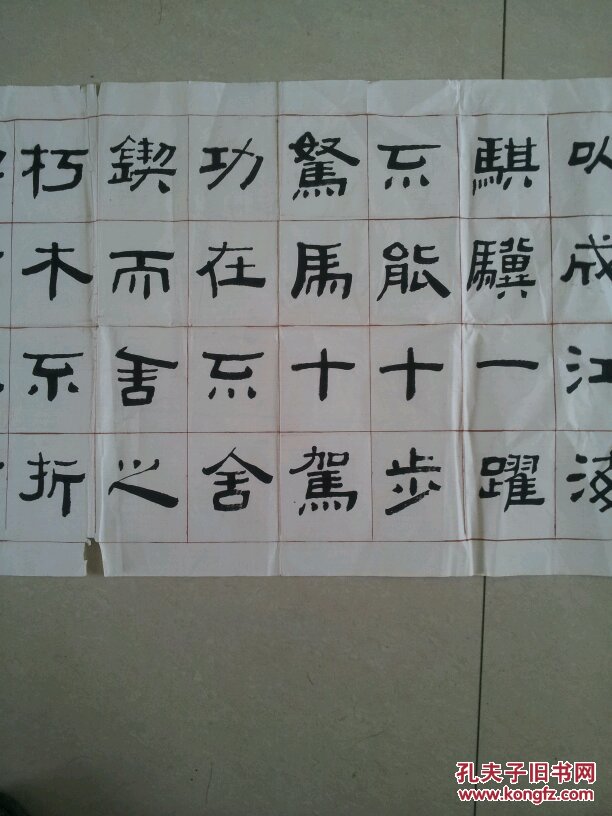 以成江海
騏驥一躍
不能十步
駑馬十駕
功在不舍
鍥而舍之
朽木不折
孔夫子旧书网
www.kongfz.com